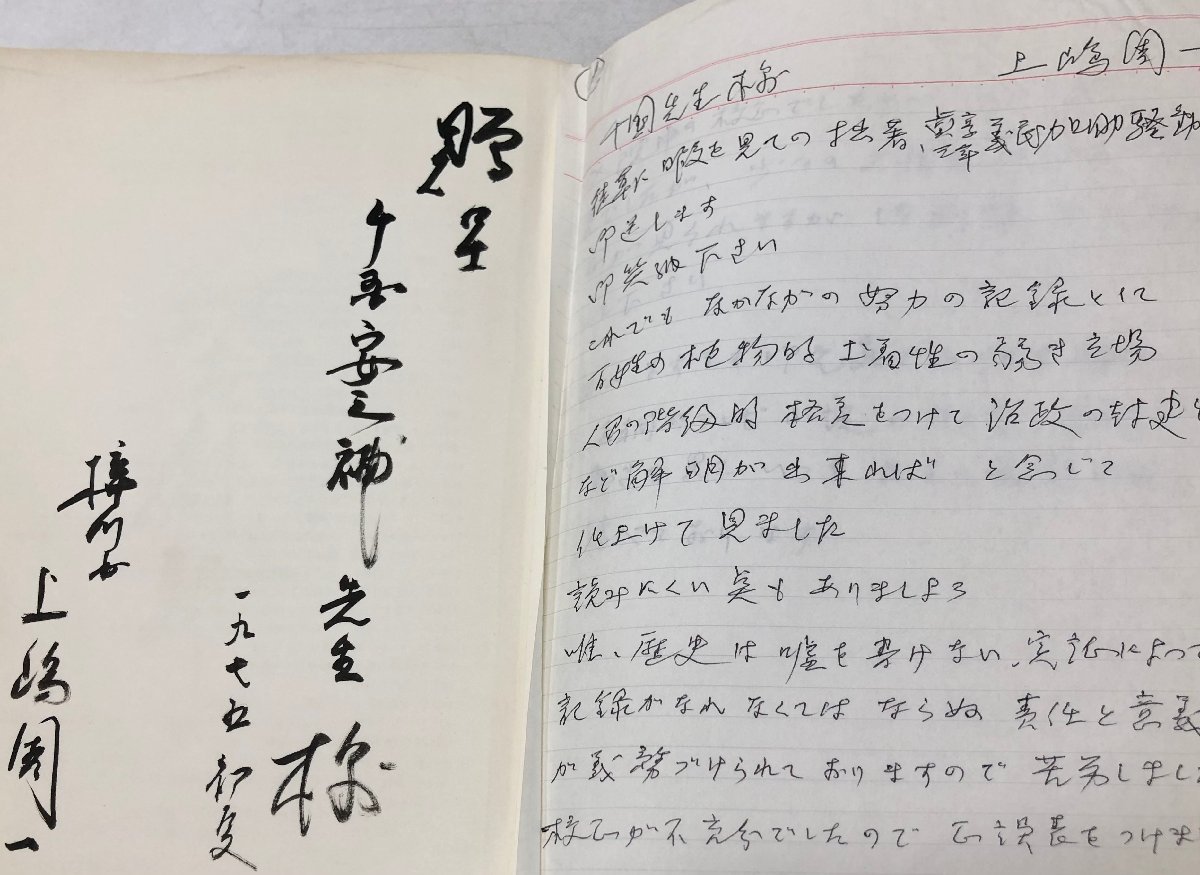 贈呈
安之補 先生 様
一九七五 初夏
梓川女
上嶋周一
上嶋周一
先生様
に暇を見ての拙著、貞享三年義民加助騒動
御送します
御笑納下さい
これでも なかなかの 努力の記録として
百姓の植物的 土着性の弱き立場
人間の階級的 格差をつけて 治政の
など解明が出来れば と念じて
仕上げて見ました
読みにくい点も ありましょう
唯、歴史は嘘を書けない、実証によって
記録がなされなくては ならぬ 責任と意義
が義務づけられて おりますので 苦労しまし
校正が不充分でしたので 正誤表をつけま